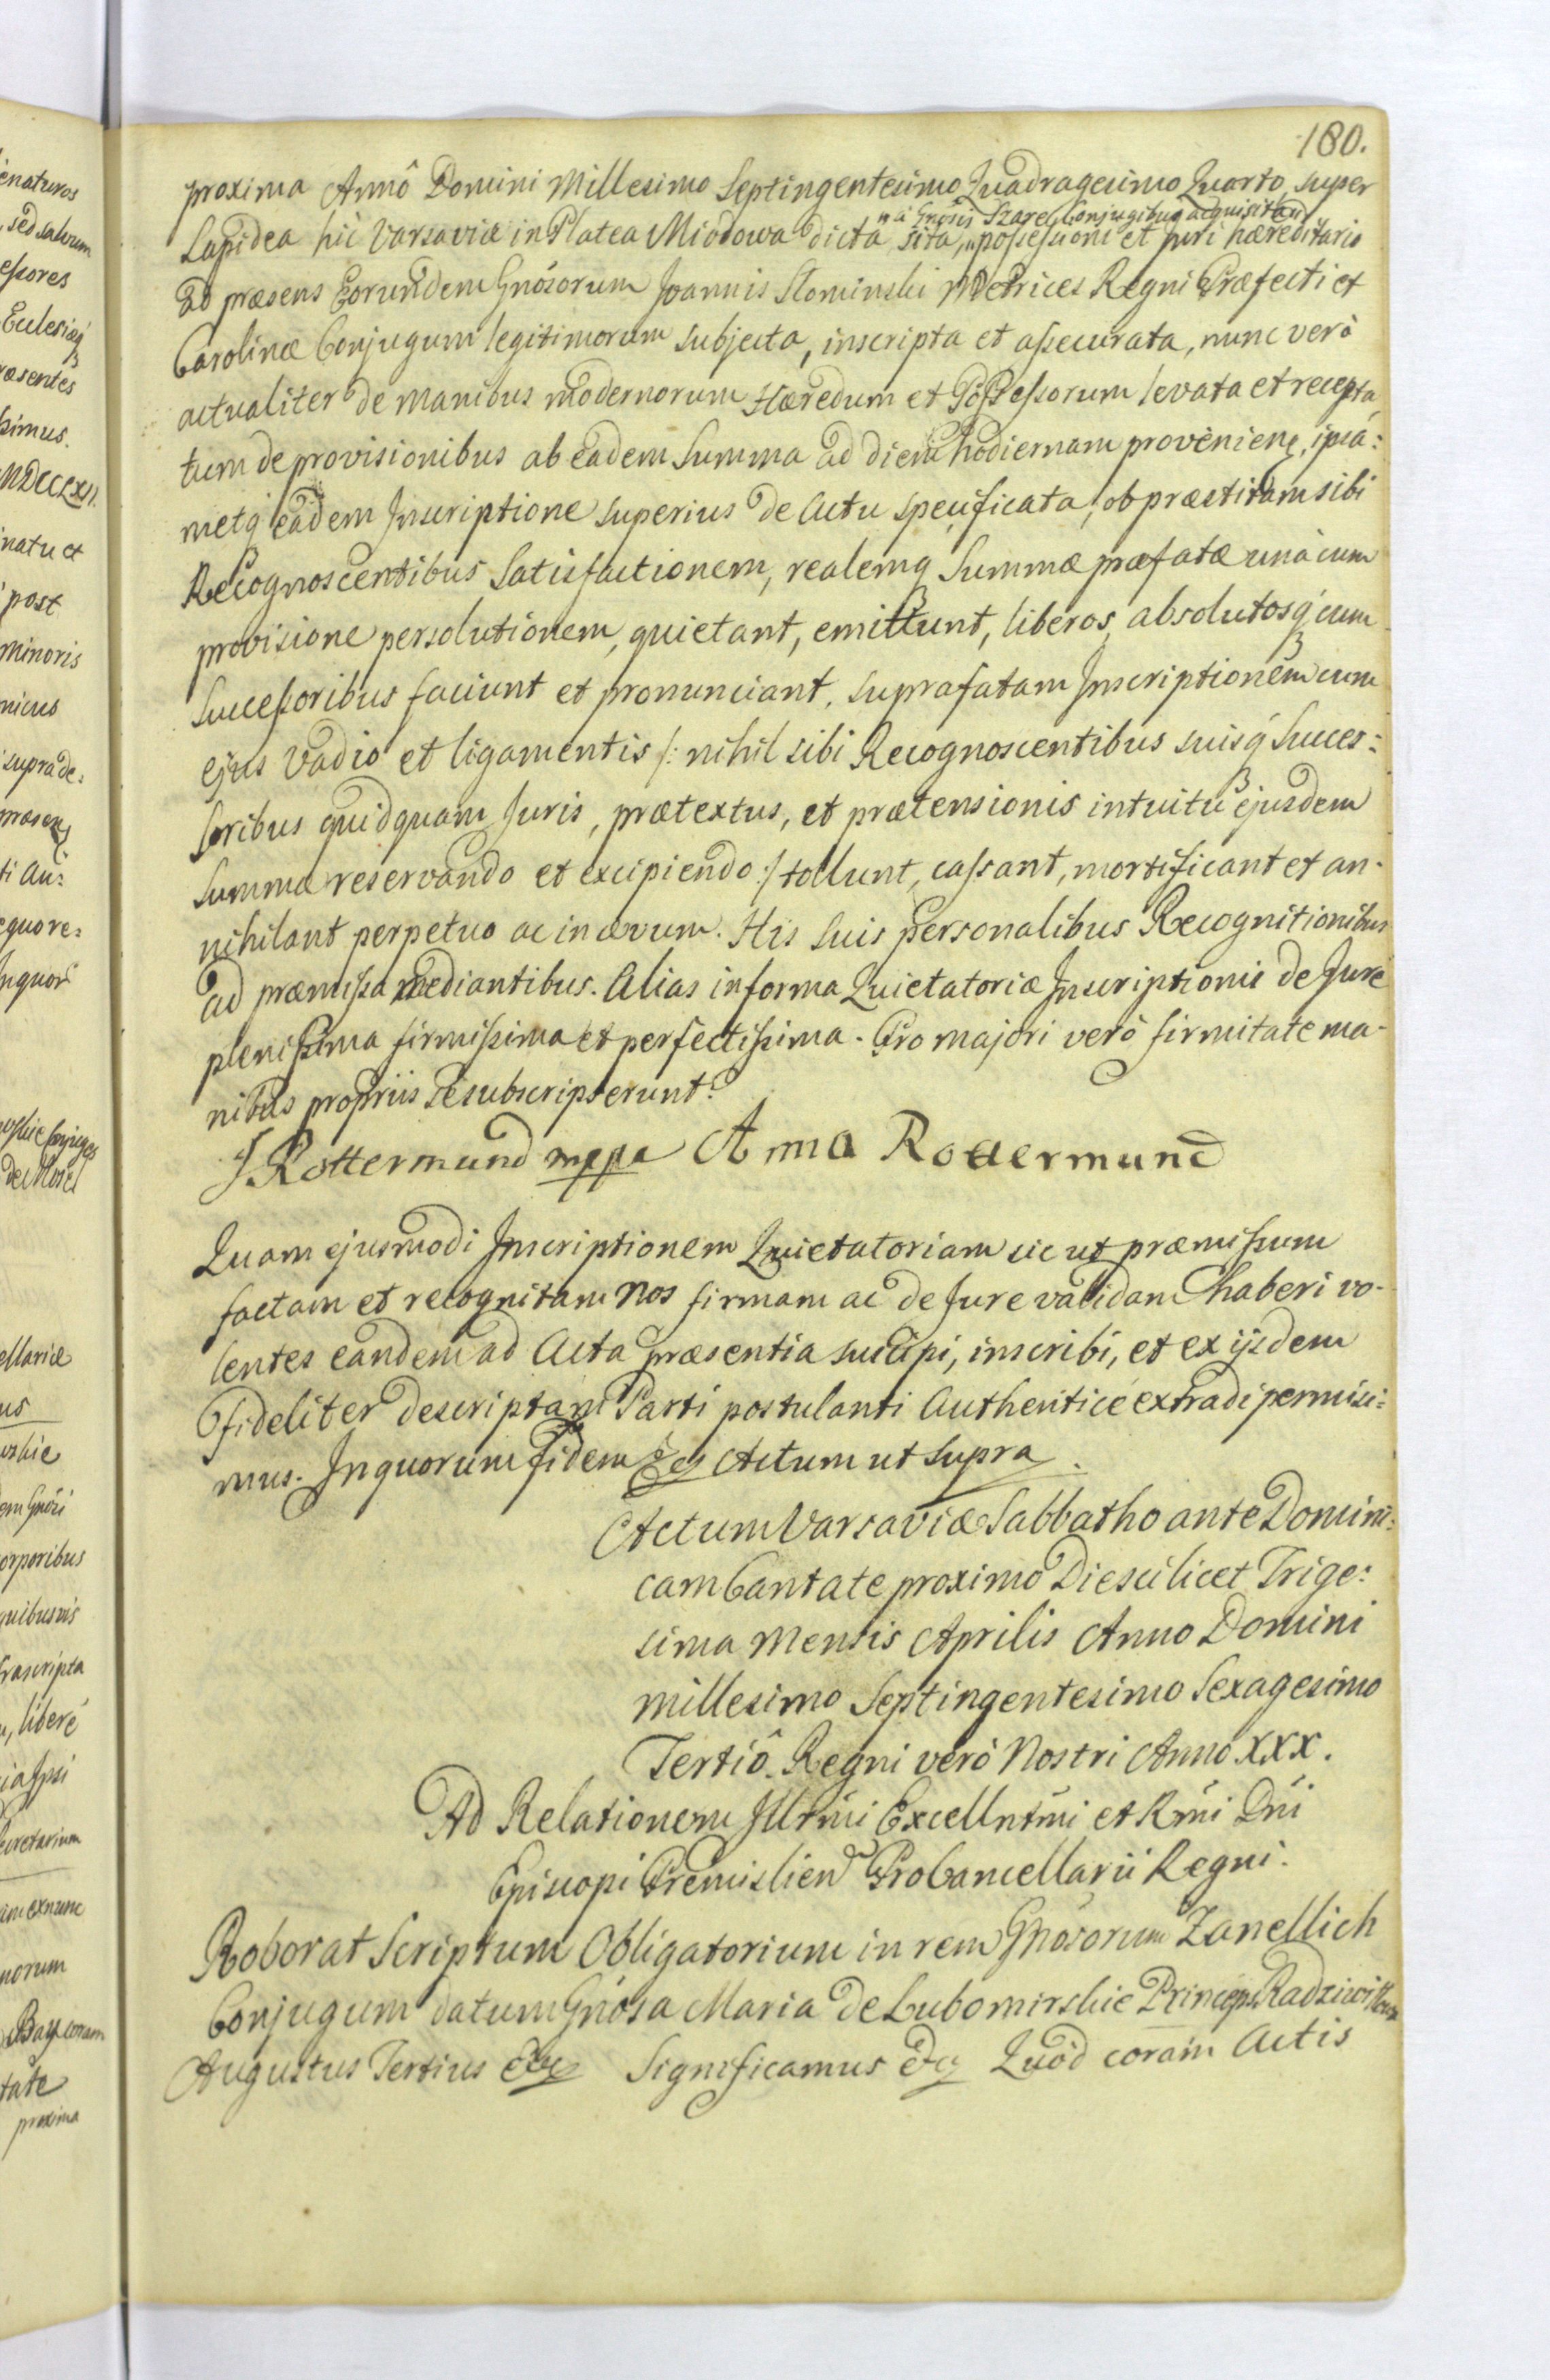 180.
proxima Annô Domini Millesimo Septingentesimo Quadragesimo Quarto, super
"a Gnosis Szare Conjugibus acquisita
Lapidea hic Varsaviæ in Platea Miodowa dicta sita, "possessioni et Juri hæreditario
ad præsens Eorundem Gnosorum Joannis Slominski Metrices Regni Præfecti et
Carolinæ Conjugum legitimorum subjecta, inscripta et assecurata, nunc verò
actualiter de manibus modernorum Hæredum et Possessorum levata et recepta,
tum de provisionibus ab eadem Summa ad diem hodiernam provenien, ipsa:
metq eadem Inscriptione superius de Actu specificata, ob præstitam sibi
Recognoscentibus Satisfactionem, realemq Summæ præfatæ unà cum
provisione persolutionem, quietant, emittunt, liberos, absolutosq cum
Successoribus faciunt et pronunciant, suprafatam Inscriptionem cum
ejus Vadio et ligamentis /: nihil sibi Recognoscentibus suisq Succes:
soribus quidquam Juris, prætextus, et prætensionis intuitu ejusdem
Summæ reservando et excipiendo :/ tollunt, cassant, mortificant et an-
nihilant perpetuo ac in ævum. His suis personalibus Recognitionibus
ad præmissa mediantibus. Alias in forma Quietatoriæ Inscriptionis de Jure
plenissima firmissima et perfectissima. Pro majori verò firmitate ma-
nibus propriis se subscripserunt.
J Rottermund mppa Anna Rottermund
Quam ejusmodi Inscriptionem Quietatoriam sic ut præmissum
factam et recognitam Nos firmam ac de Jure validam haberi vo-
lentes eandem ad Acta præsentia suscipi, inscribi, et ex ijsdem
fideliter descriptam Parti postulanti Authenticè extradi permisi:
mus. In quorum fidem &c Actum ut supra.
Actum Varsaviæ Sabbatho ante Domini:
cam Cantate proximo Die scilicet Trige:
sima Mensis Aprilis Anno Domini
millesimo Septingentesimo Sexagesimo
Tertiô. Regni verò Nostri Anno XXX.
Ad Relationem Illrmi Excellntmi et Rmi Dni
Episcopi Premislien ProCancellarii Regni.
Roborat Scriptum Obligatorium in rem Gnosorum Zanellich
Conjugum datum Gnosa Maria de Lubomirskie Princeps Radziwiłłowa
Augustus Tertius &c Significamus &c Quod coram Actis